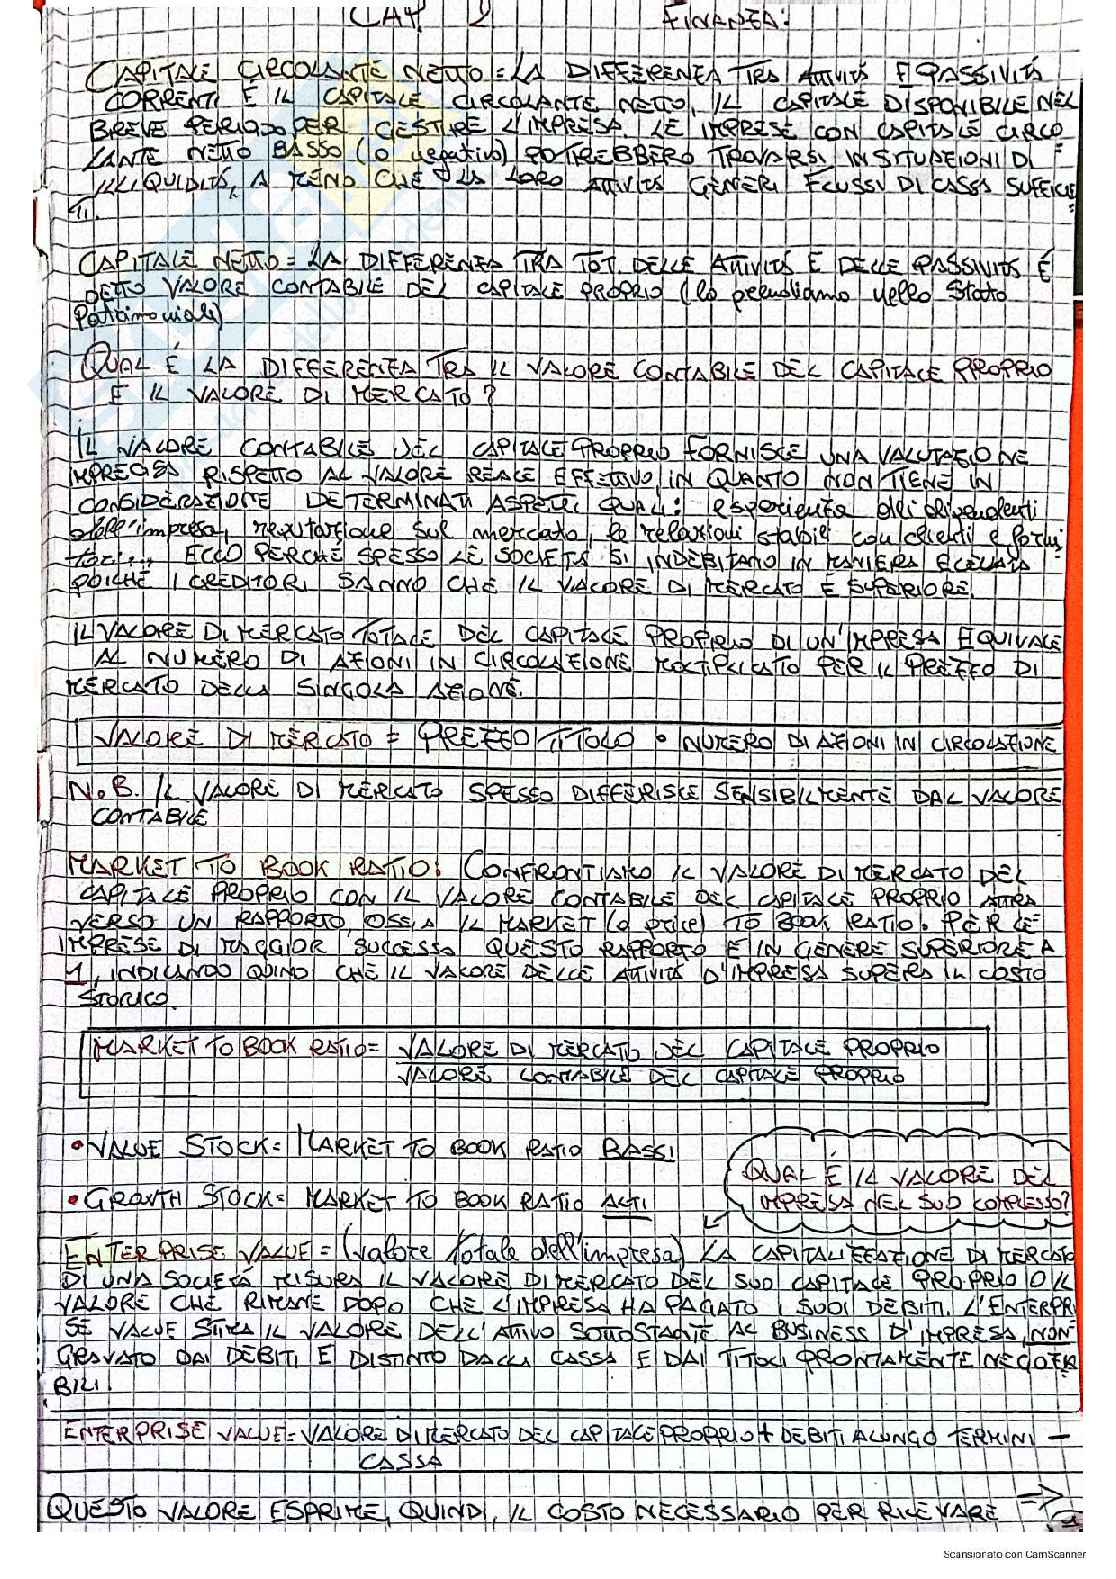 CAP 2 FINANZA:
CAPITALE CIRCOLANTE NETTO = LA DIFFERENZA TRA ATTIVITÀ E PASSIVITÀ
CORRENTI È IL CAPITALE CIRCOLANTE NETTO, IL CAPITALE DISPONIBILE NEL
BREVE PERIODO PER GESTIRE L'IMPRESA. LE IMPRESE CON CAPITALE CIRCO
LANTE NETTO BASSO (o negativo) POTREBBERO TROVARSI IN SITUAZIONI DI
ILLIQUIDITÀ, A MENO CHE LA LORO ATTIVITÀ GENERI FLUSSI DI CASSA SUFFICIEN
TI.
CAPITALE NETTO = LA DIFFERENZA TRA TOT. DELLE ATTIVITÀ E DELLE PASSIVITÀ È
DETTO VALORE CONTABILE DEL CAPITALE PROPRIO (lo prendiamo nello Stato
Patrimoniale)
QUAL È LA DIFFERENZA TRA IL VALORE CONTABILE DEL CAPITALE PROPRIO
E IL VALORE DI MERCATO?
IL VALORE CONTABILE DEL CAPITALE PROPRIO FORNISCE UNA VALUTAZIONE
IMPRECISA RISPETTO AL VALORE REALE EFFETTIVO, IN QUANTO NON TIENE IN
CONSIDERAZIONE DETERMINATI ASPETTI QUALI: esperienza dei dipendenti
dell'impresa, reputazione sul mercato, le relazioni stabili con clienti e forni
tori... ECCO PERCHÉ SPESSO LE SOCIETÀ SI INDEBITANO IN MANIERA ELEVATA
POICHÉ I CREDITORI SANNO CHE IL VALORE DI MERCATO È SUPERIORE.
IL VALORE DI MERCATO TOTALE DEL CAPITALE PROPRIO DI UN'IMPRESA EQUIVALE
AL NUMERO DI AZIONI IN CIRCOLAZIONE MOLTIPLICATO PER IL PREZZO DI
MERCATO DELLA SINGOLA AZIONE.
VALORE DI MERCATO = PREZZO TITOLO • NUMERO DI AZIONI IN CIRCOLAZIONE
N.B. IL VALORE DI MERCATO SPESSO DIFFERISCE SENSIBILMENTE DAL VALORE
CONTABILE
MARKET TO BOOK RATIO: CONFRONTIAMO IL VALORE DI MERCATO DEL
CAPITALE PROPRIO CON IL VALORE CONTABILE DEL CAPITALE PROPRIO ATTRA
VERSO UN RAPPORTO, OSSIA IL MARKET (o price) TO BOOK RATIO. PER LE
IMPRESE DI MAGGIOR SUCCESSO QUESTO RAPPORTO È IN GENERE SUPERIORE A
1, INDICANDO QUINDI CHE IL VALORE DELLE ATTIVITÀ D'IMPRESA SUPERA IL COSTO
STORICO.
MARKET TO BOOK RATIO = VALORE DI MERCATO DEL CAPITALE PROPRIO
VALORE CONTABILE DEL CAPITALE PROPRIO
• VALUE STOCK = MARKET TO BOOK RATIO BASSI
• GROWTH STOCK = MARKET TO BOOK RATIO ALTI
QUAL È IL VALORE DEL
IMPRESA NEL SUO COMPLESSO?
ENTERPRISE VALUE = (valore totale dell'impresa) LA CAPITALIZZAZIONE DI MERCATO
DI UNA SOCIETÀ MISURA IL VALORE DI MERCATO DEL SUO CAPITALE PROPRIO O IL
VALORE CHE RIMANE DOPO CHE L'IMPRESA HA PAGATO I SUOI DEBITI. L'ENTERPRI
SE VALUE STIMA IL VALORE DELL'ATTIVO SOTTOSTANTE AL BUSINESS D'IMPRESA, NON
GRAVATO DAI DEBITI E DISTINTO DALLA CASSA E DAI TITOLI PRONTAMENTE NEGOZIA
BILI.
ENTERPRISE VALUE = VALORE DI MERCATO DEL CAPITALE PROPRIO + DEBITI A LUNGO TERMINI -
CASSA
QUESTO VALORE ESPRIME, QUINDI, IL COSTO NECESSARIO PER RILEVARE →
Scansionato con CamScanner